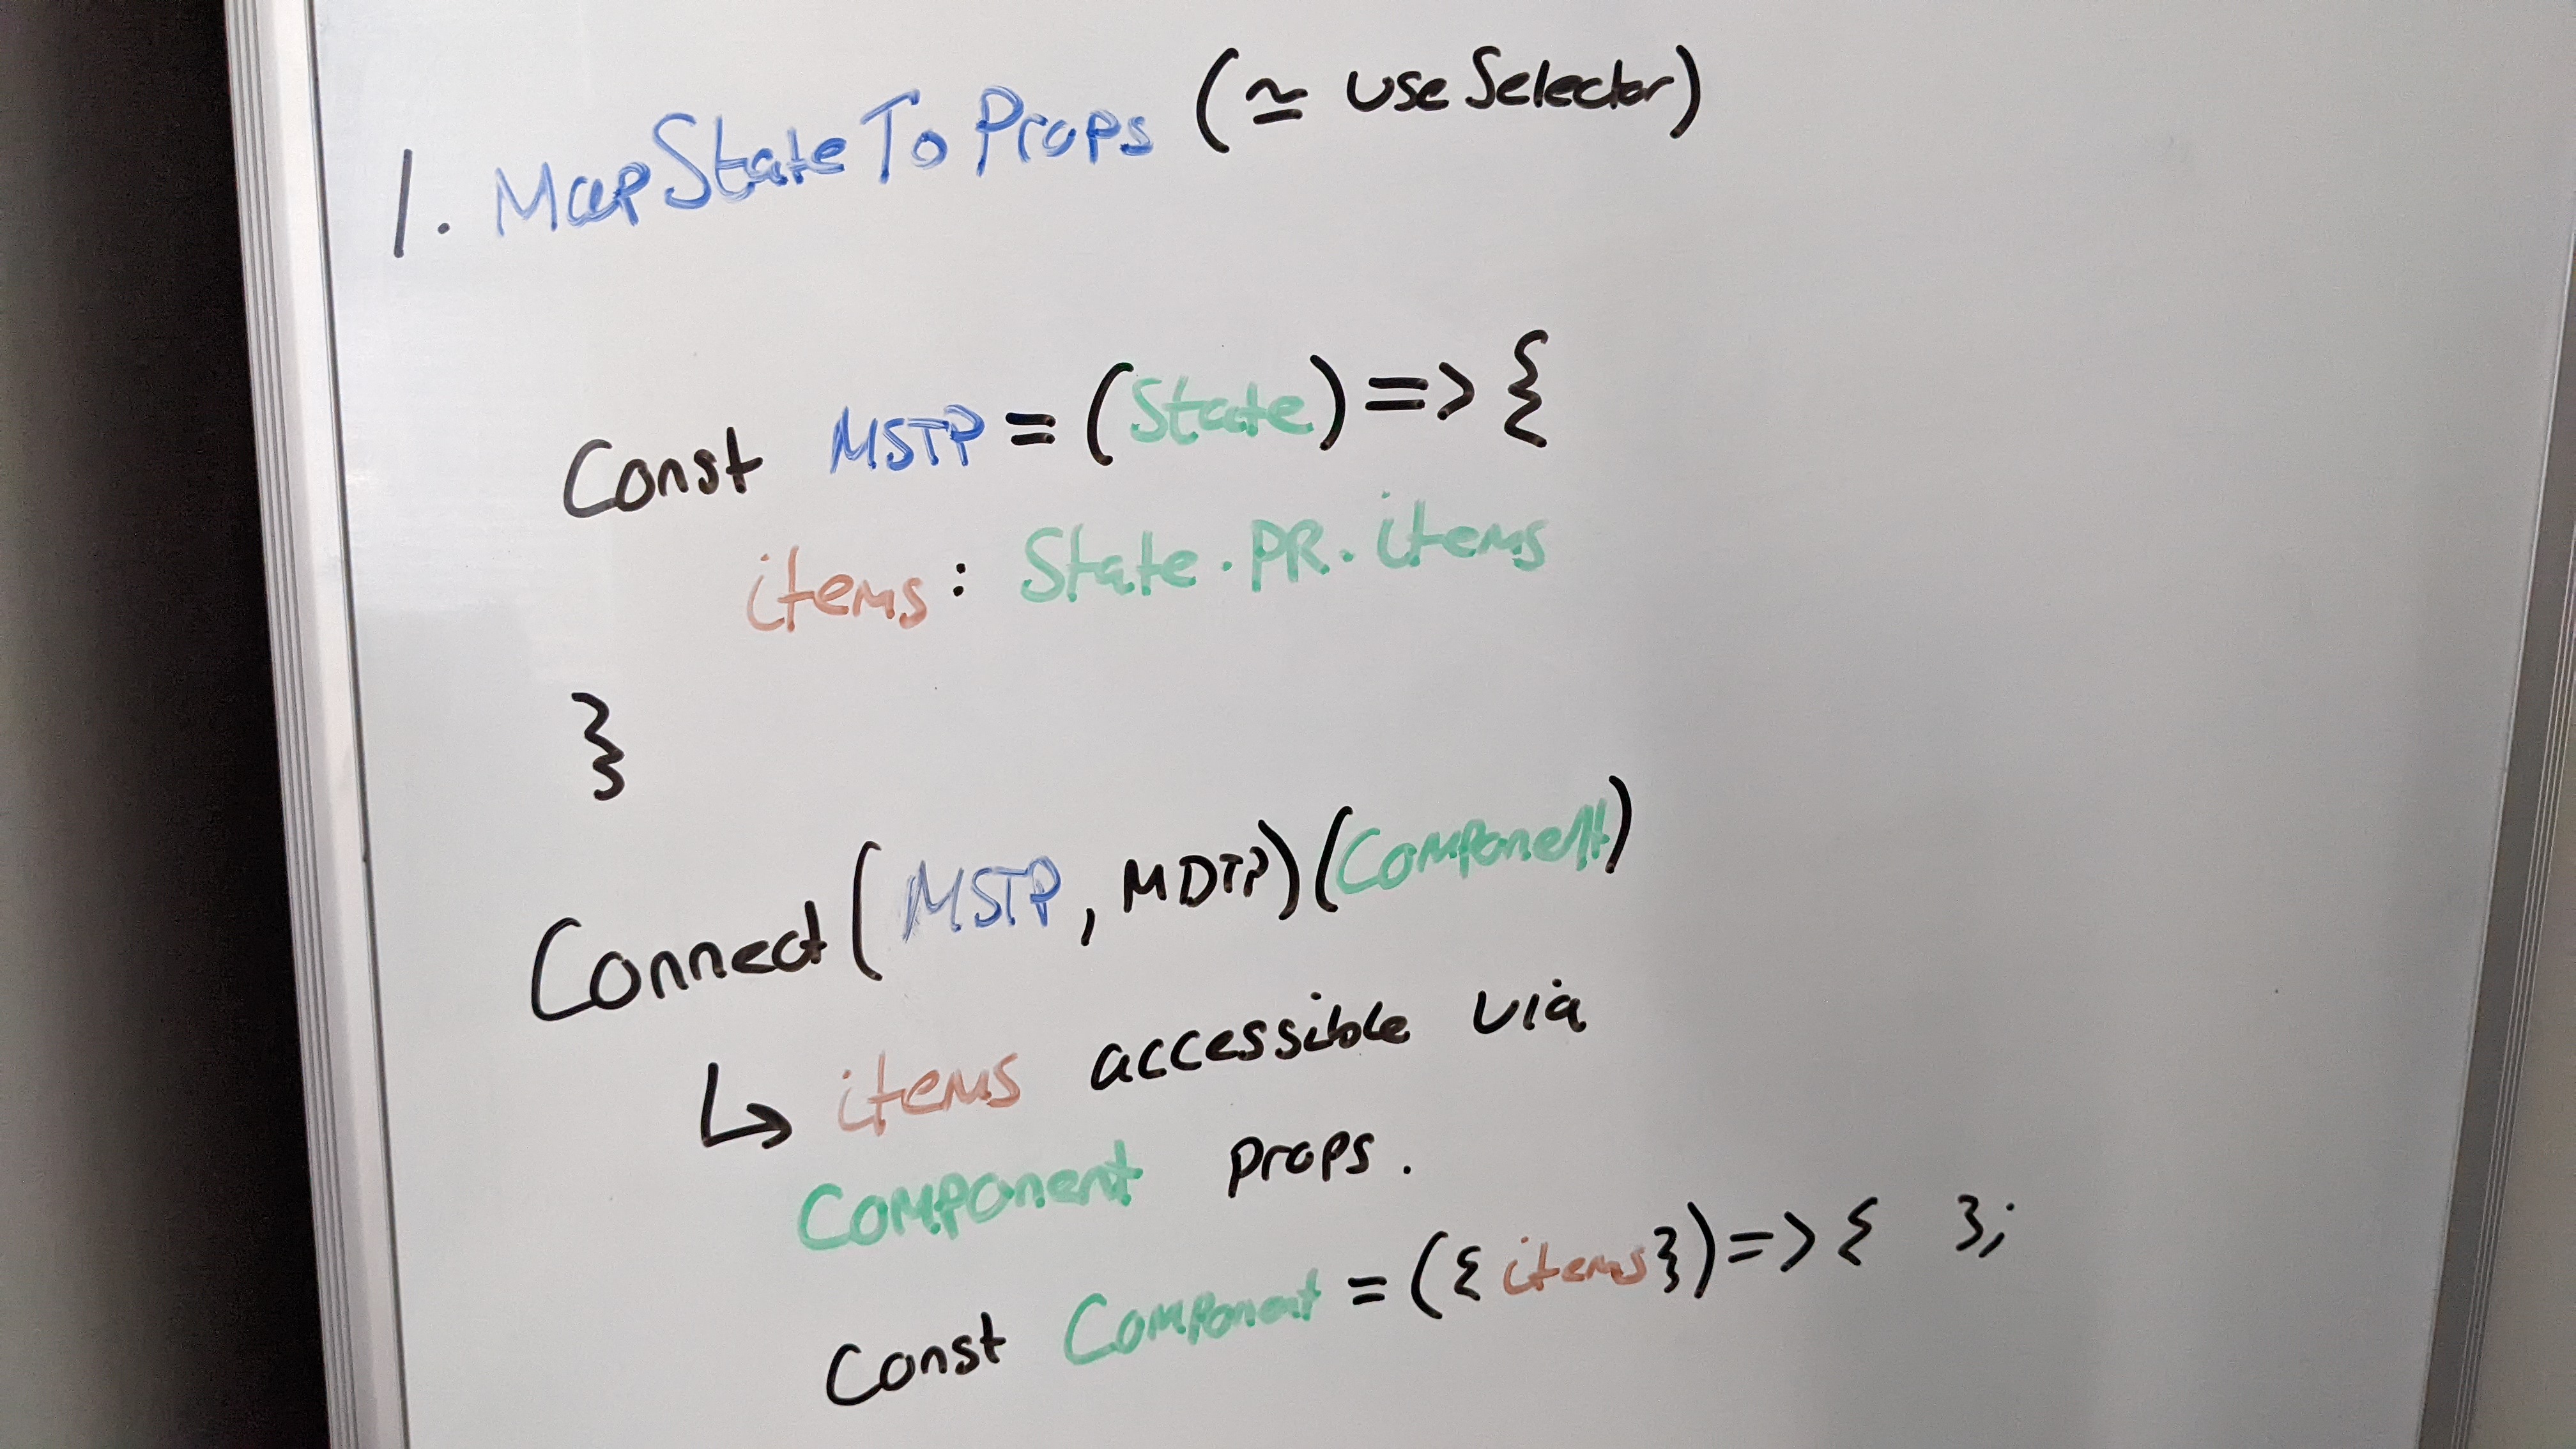 1. MapStateToProps (≃ useSelector)
Const MSTP = (State) => {
items: State.PR.items
}
Connect(MSTP, MDTP)(Component)
↳ items accessible via
Component props.
Const Component = ({items}) => { };